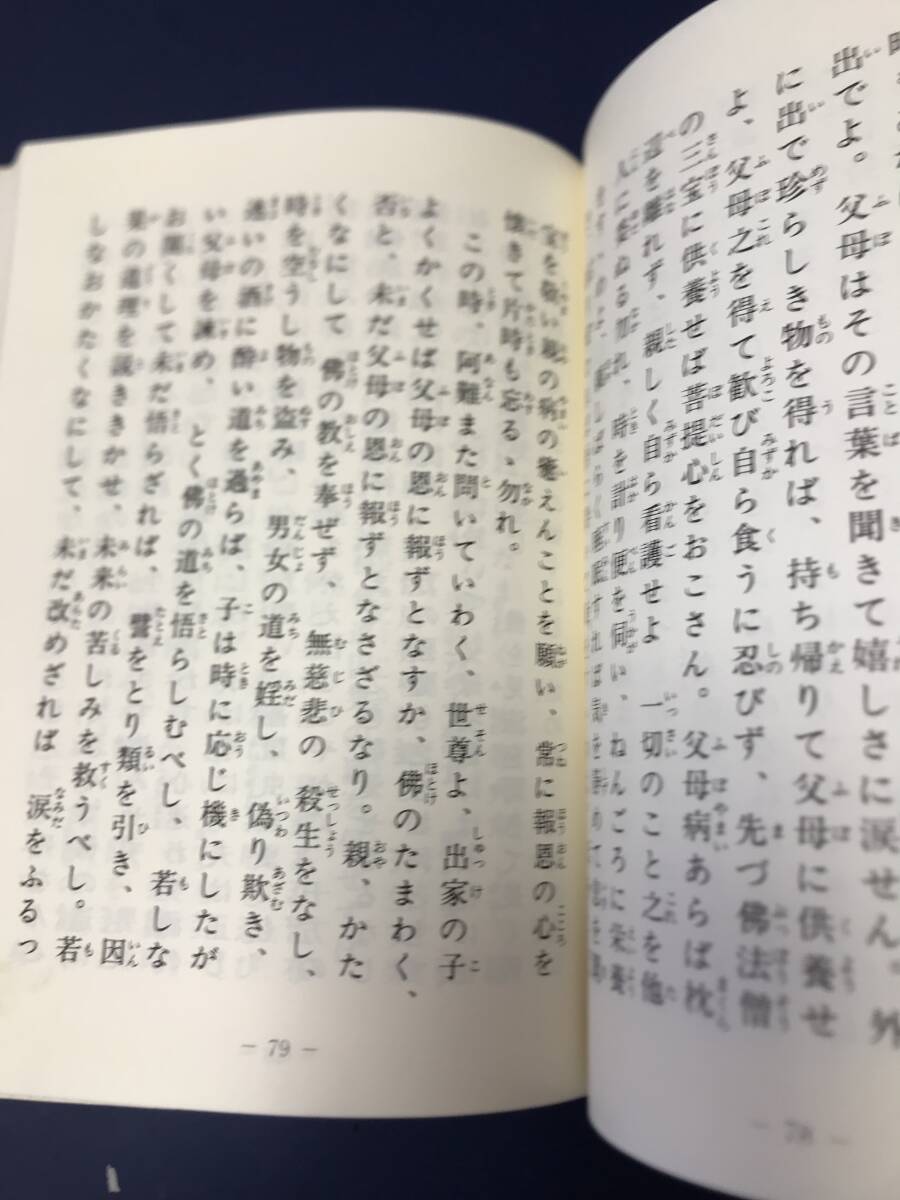 出でよ。父母はその言葉を聞きて嬉しさに涙せん。外
に出で珍らしき物を得れば、持ち帰りて父母に供養せ
よ、父母之を得て歓び自ら食うに忍びず、先づ佛法僧
の三宝に供養せば菩提心をおこさん。父母病あらば枕
辺を離れず、親しく自ら看護せよ 一切のこと之を他
人に委ぬる勿れ、時を計り便を伺い、ねんごろに栄養
－ 78 －
宝を敬い親の病の癒えんことを願い、常に報恩の心を
懐きて片時も忘るゝ勿れ。
この時、阿難また問いていわく、世尊よ、出家の子
よくかくせば父母の恩に報ずとなすか、佛のたまわく、
否と、未だ父母の恩に報ずとなさざるなり。親、かた
くなにして 佛の教を奉ぜず、無慈悲の殺生をなし、
時を空うし物を盗み、男女の道を婬し、偽り欺き、
迷いの酒に酔い道を過らば、子は時に応じ機にしたが
い父母を諫め、とく佛の道を悟らしむべし、若しな
お闇くして未だ悟らざれば、譬をとり類を引き、因
果の道理を説ききかせ、未来の苦しみを救うべし。若
しなおかたくなにして、未だ改めざれば 涙をふるっ
－ 79 －